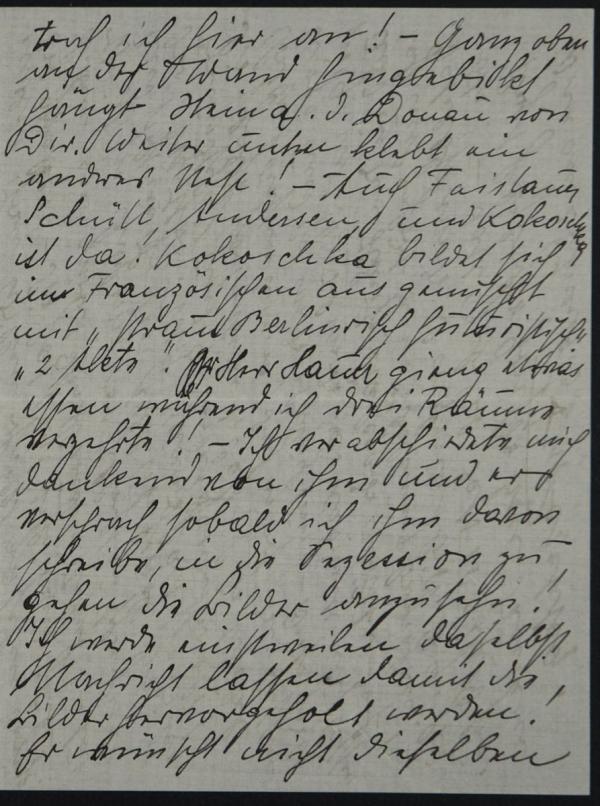 traf ich hier an! – Ganz oben
an der Wand hingebickt
hängt Stein a. d. Donau von
Dir. Weiter unten klebt ein
anderes Nest! – Auch Faistauer
Schütt, Andersen, und Kokoschka
ist da! Kokoschka bildet sich
im Französischen aus gemischt
mit „ Berlinerisch futuristisch"
„2 Akte". Herr Haur gieng etwas
essen während ich drei Räume
verzehrte! – Ich verabschiedete mich
dankend von ihm und er
versprach sobald ich ihm davon
schreibe, in die Sezession zu
gehen die Bilder anzusehn!
Ich werde einstweilen daselbst
Nachricht lassen damit die
Bilder hervorgeholt werden!
Er wünscht nicht dieselben